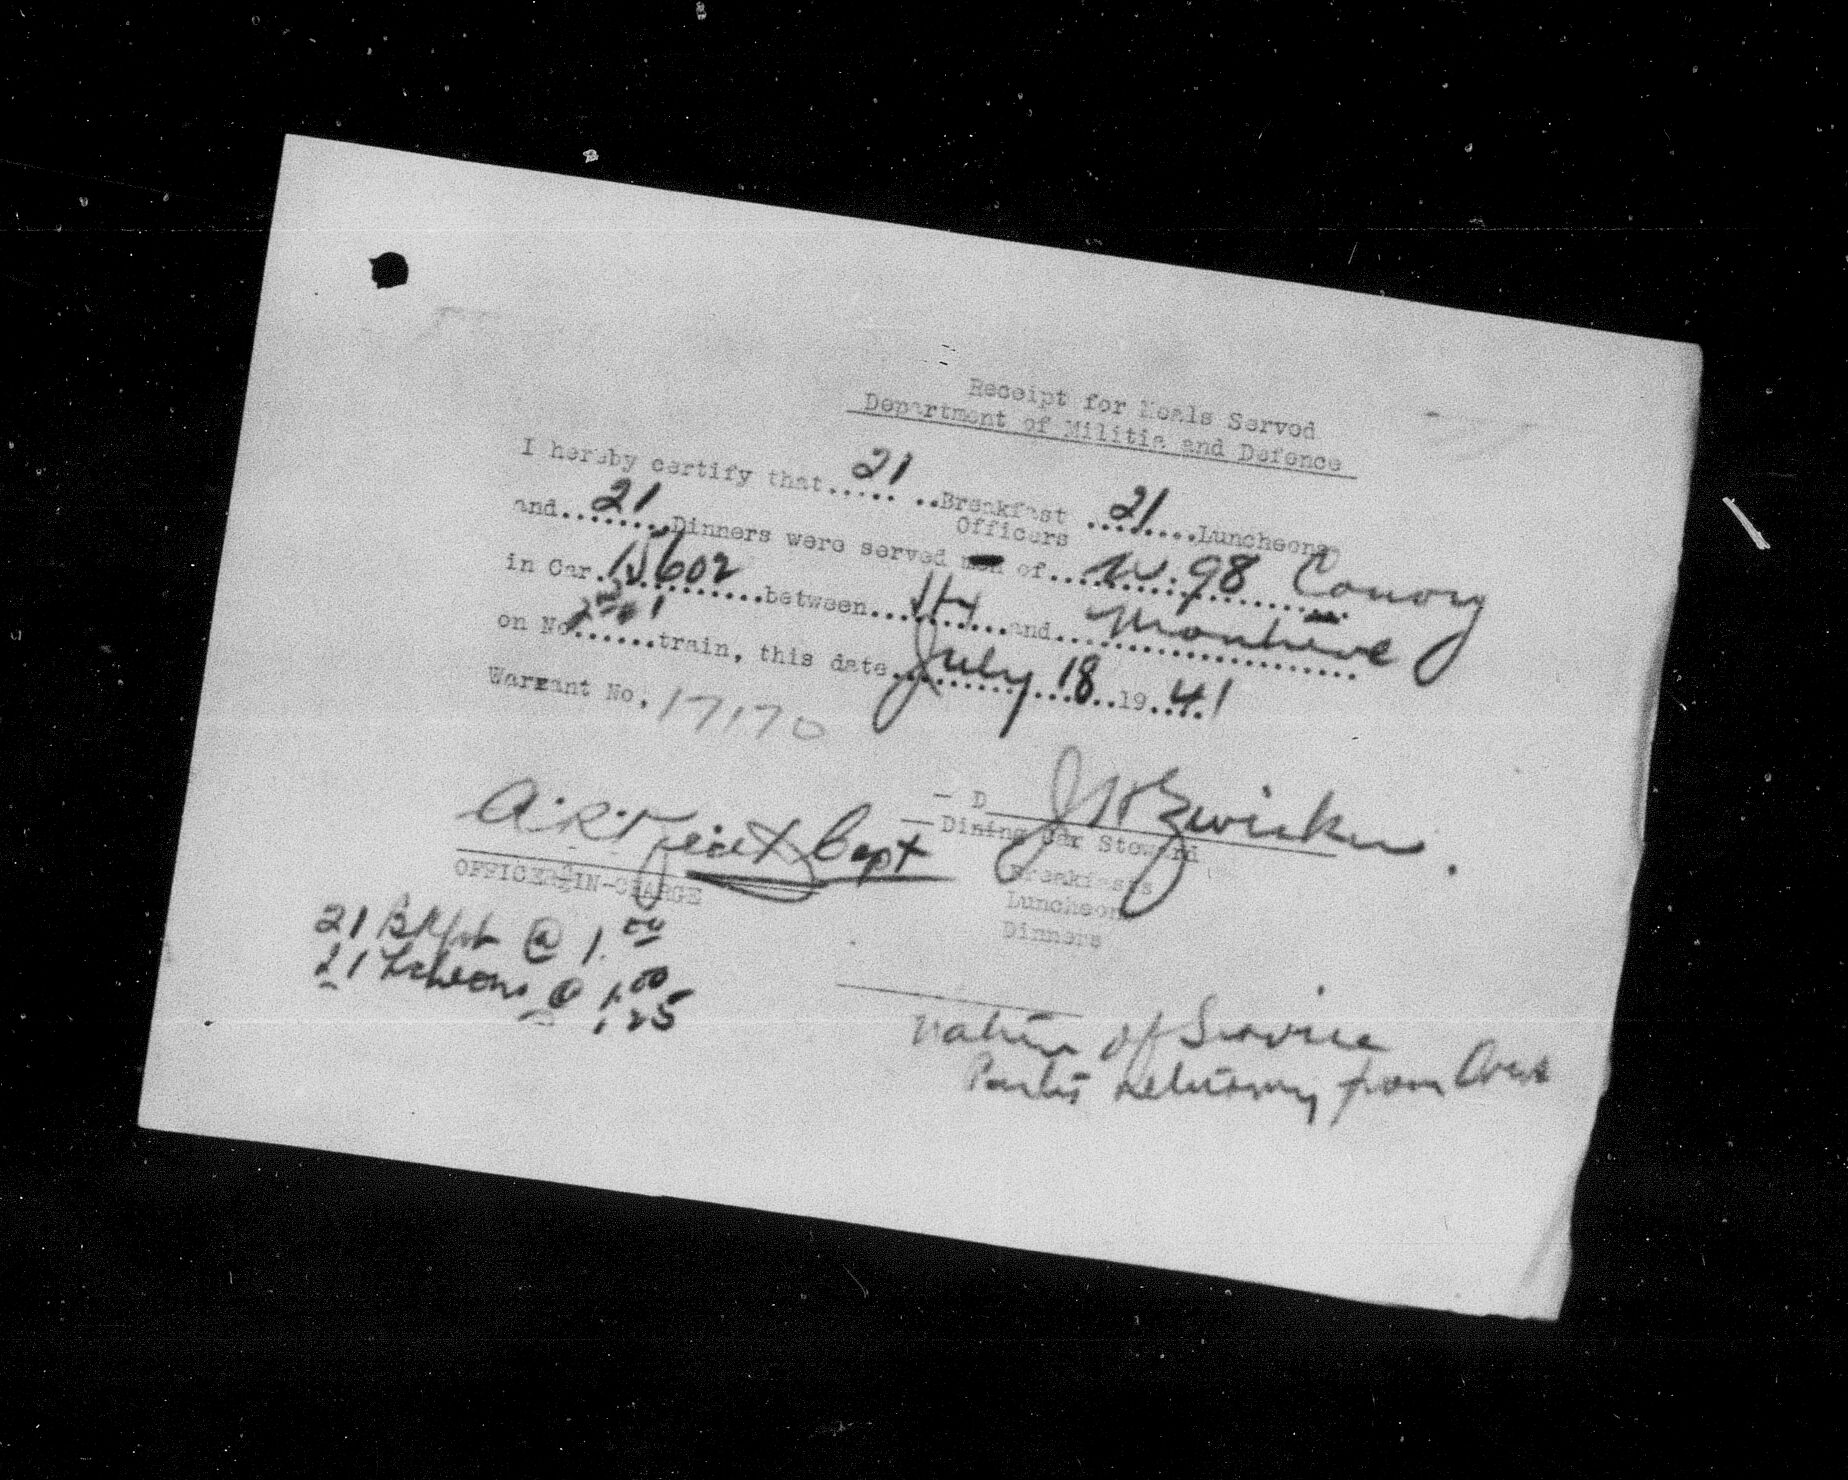 Receipt for Meals Served
Department of Militia and Defence
I hereby certify that..... 21 ..Breakfast 21 ........Luncheons
and.. 21 .......Dinners were served Officers men of... W. 98 Convoy
in Car. 15602 ..........between... Hx ........and... Montreal
on No. .......train, this date. July 18 ..19 41
Warrant No. 17170
— D
A.R. Capt
— Dining Car Steward
OFFICER-IN-CHARGE
Breakfasts
Luncheons
Dinners
21 Bkfst @ 1.00
21 Lcheons @ 1.00
1.25
Nature of Service
returning from